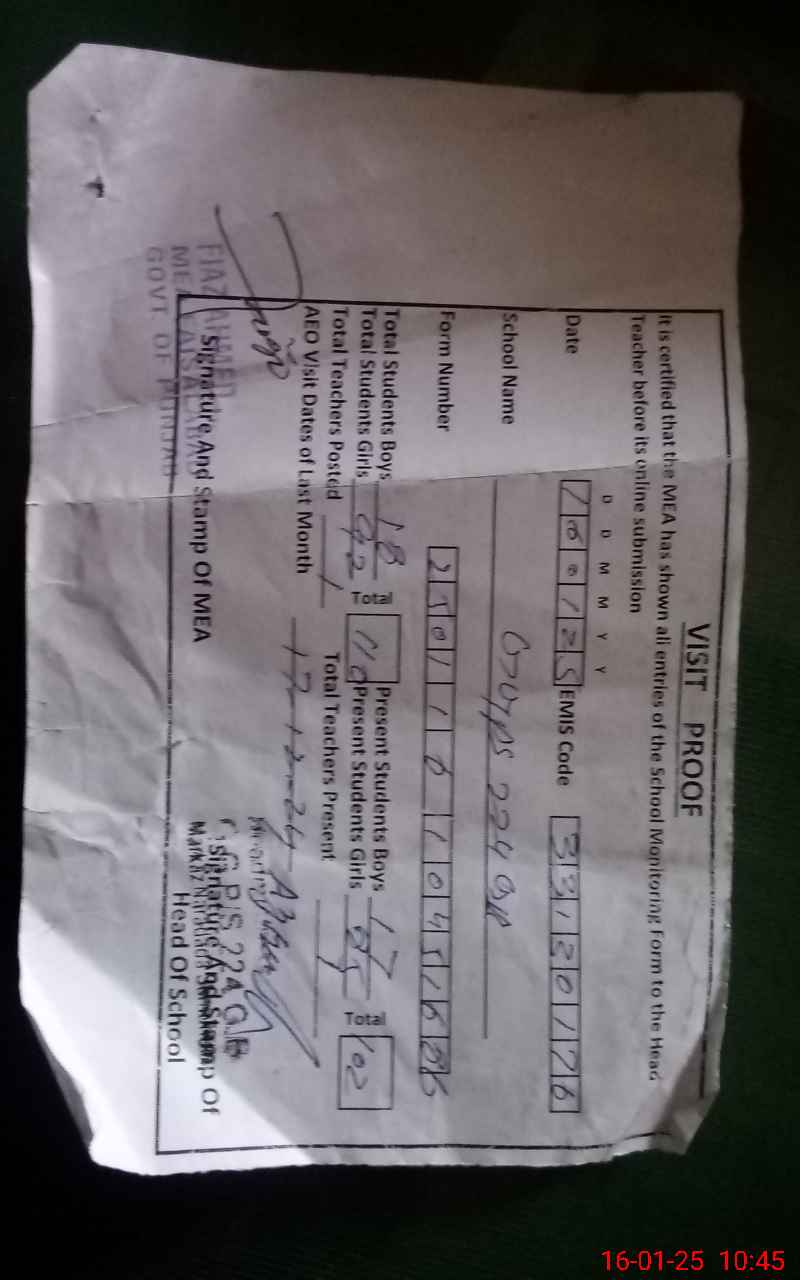 VISIT PROOF
It is certified that the MEA has shown all entries of the School Monitoring Form to the Head
Teacher before its online submission
D D M M Y Y
Date 160125 EMIS Code 33120176
School Name 224 GB
Form Number
Total Students Boys 18 Present Students Boys 17
Total Students Girls 92 Total 110 Present Students Girls 85 Total 102
Total Teachers Posted 1 Total Teachers Present 1
AEO Visit Dates of Last Month 17-12-24
FIAZ AHMED
MEA FAISALABAD
GOVT. OF PUNJAB
Signature And Stamp Of MEA
P/S 224 G.B
Signature And Stamp Of
Head Of School
16-01-25 10:45